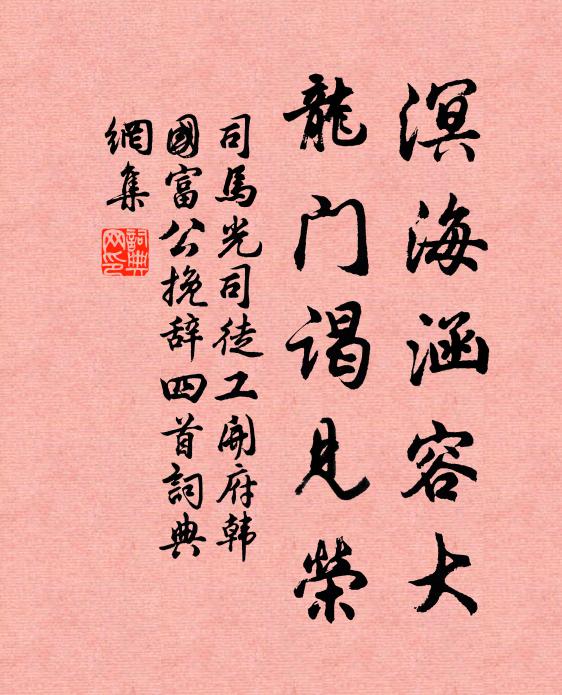 溟海涵容大
龍门谒见榮
司馬光司徒工開府韩
國富公挽辞四首詞典
網集
詞典
网印